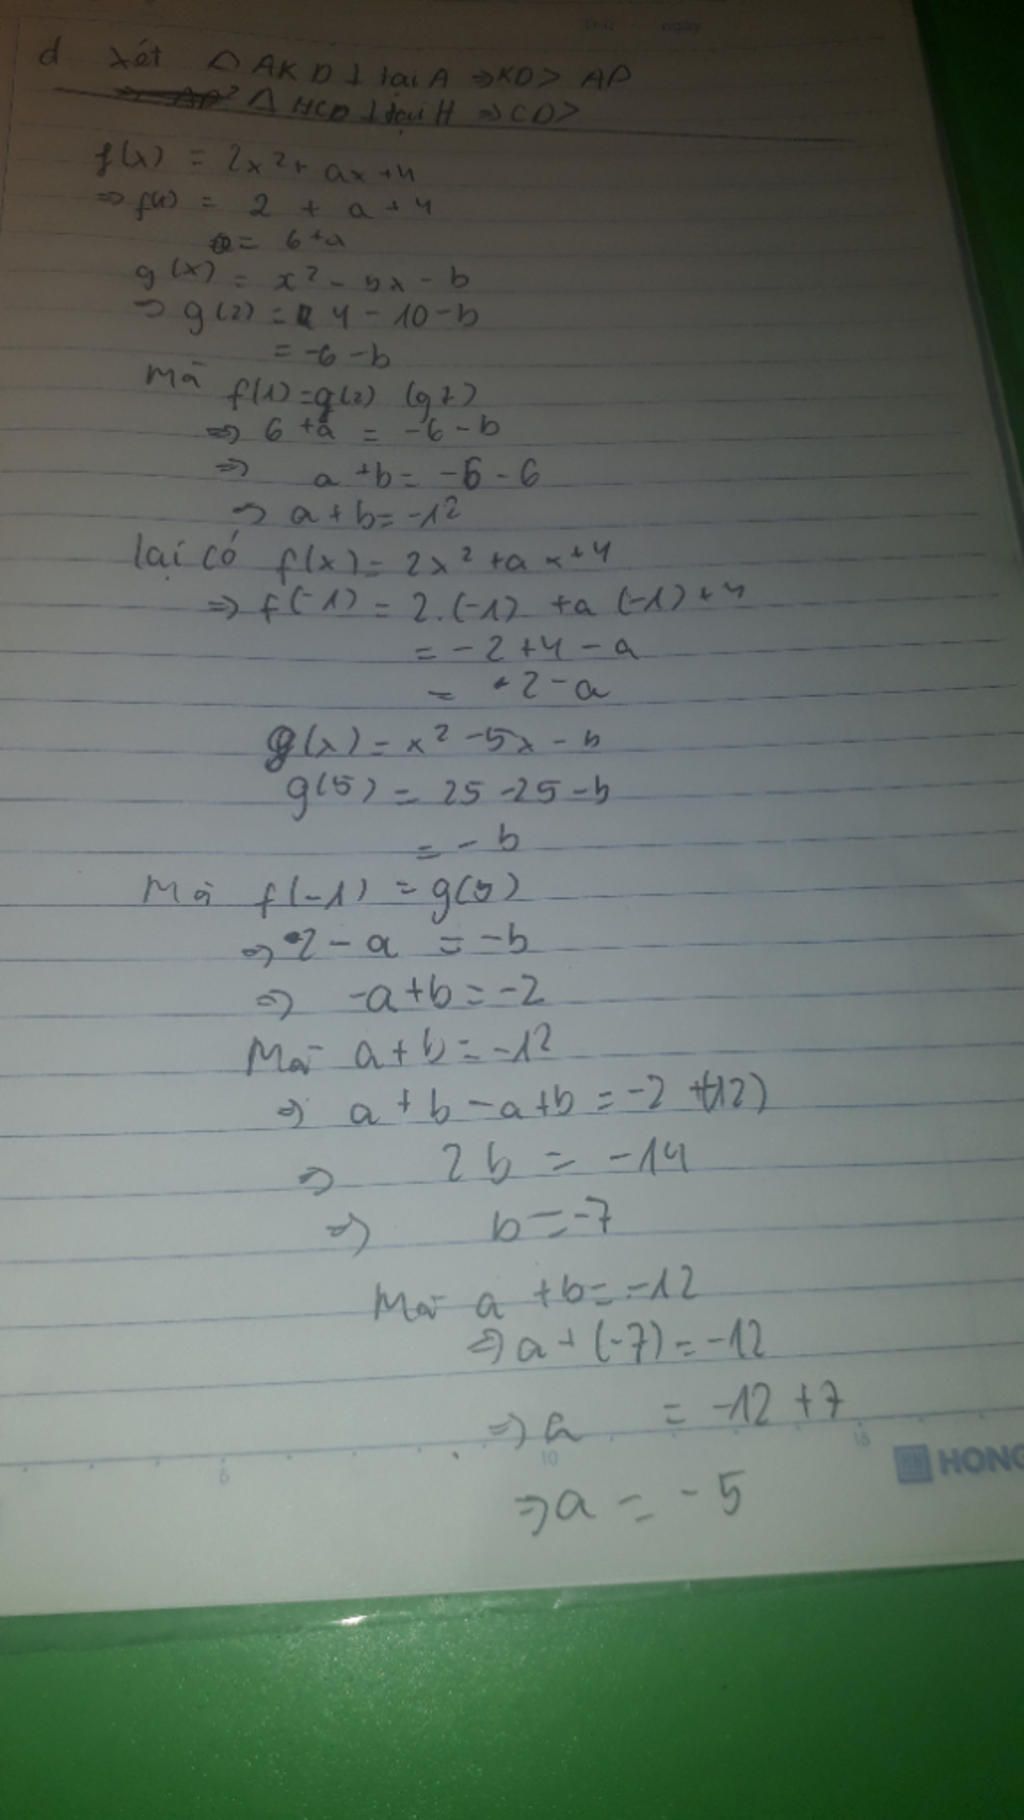 d xét Δ AKD ⊥ tại A ⇒ KD > AD
Δ HCD ⊥ tại H ⇒ CD >
f(x) = 2x² + ax + 4
⇒ f(1) = 2 + a + 4
= 6 + a
g(x) = x² - 5x - b
⇒ g(2) = 4 - 10 - b
= -6 - b
Mà f(1) = g(2) (gt)
⇒ 6 + a = -6 - b
⇒ a + b = -6 - 6
⇒ a + b = -12
lại có f(x) = 2x² + ax + 4
⇒ f(-1) = 2.(-1) + a(-1) + 4
= -2 + 4 - a
= 2 - a
g(x) = x² - 5x - b
g(5) = 25 - 25 - b
= - b
Mà f(-1) = g(5)
⇒ 2 - a = -b
⇒ -a + b = -2
Mà a + b = -12
⇒ a + b - a + b = -2 + (-12)
⇒ 2b = -14
⇒ b = -7
Mà a + b = -12
⇒ a + (-7) = -12
⇒ a = -12 + 7
5 10 15 HONG
⇒ a = -5